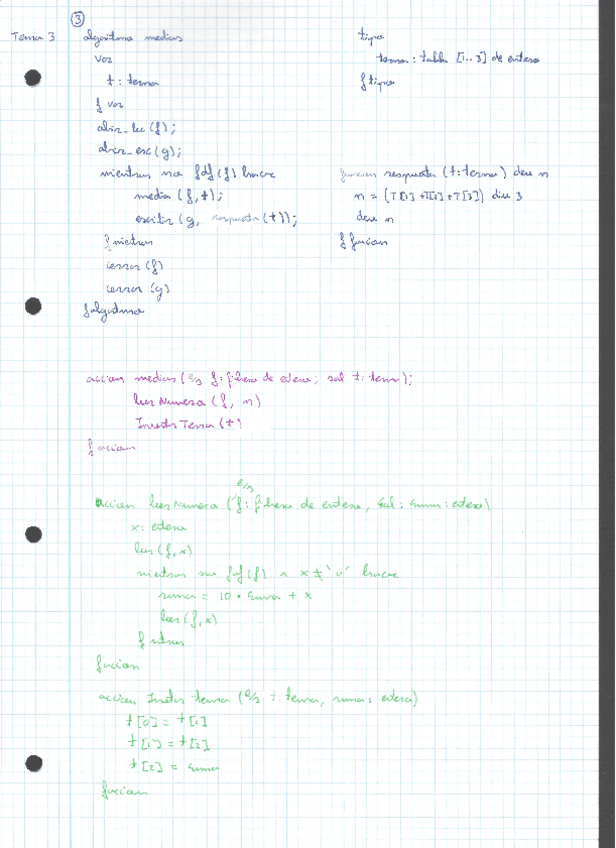 ③
Tema 3
algoritmo medias
var
t: terna
f var
abrir_lec (f);
abrir_esc (g);
mientras no fdf (f) hacer
media (f, t);
escribir (g, respuesta (t));
f mientras
cerrar (f)
cerrar (g)
falgoritmo
tipo
terna: tabla [1..3] de entero
f tipo
funcion respuesta (t: terna) deve n
n = (T[1] + T[2] + T[3]) div 3
deve n
f funcion
accion medias (e/s f: fichero de entero; sal t: terna);
leerNumero (f, n)
InsertTerna (t)
faccion
accion leerNumero (e/s f: fichero de enteros, sal: suma: entero)
x: entero
leer (f, x)
mientras no fdf (f) ∧ x ≠ ' ' hacer
suma = 10 * suma + x
leer (f, x)
f mientras
faccion
accion Insertar terna (e/s t: terna, suma: entero)
t[0] = t[1]
t[1] = t[2]
t[2] = suma
faccion